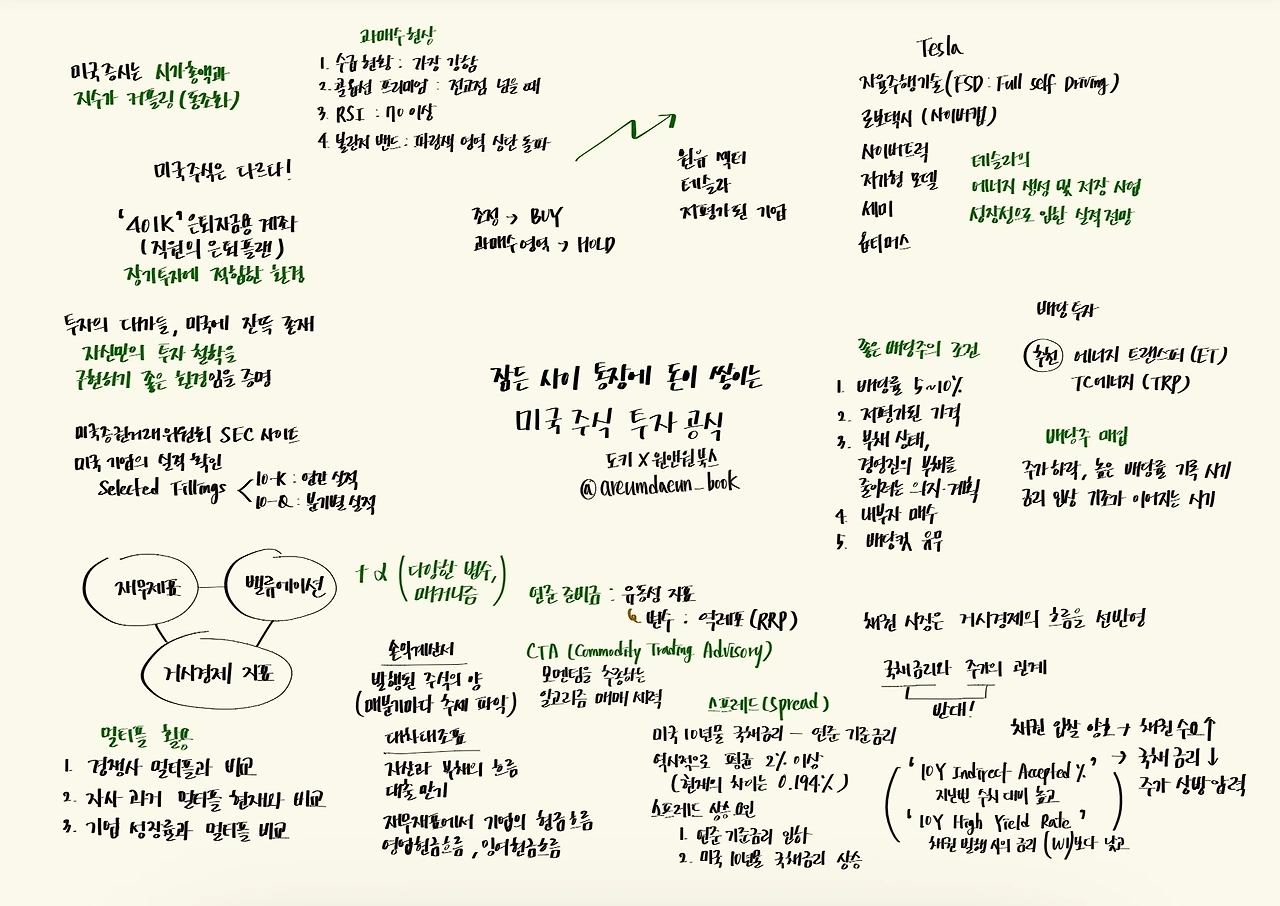 미국증시는 시가총액과
지수가 커플링(동조화)
미국주식은 다르다!
'401K' 은퇴자금용 계좌
(직원의 은퇴플랜)
장기투자에 적합한 환경
투자의 대가들, 미국에 잔뜩 존재
자신만의 투자 철학을
구현하기 좋은 환경임을 증명
미국증권거래위원회 SEC 사이트
미국 기업의 실적 확인
Selected Fillings
10-K : 연간 실적
10-Q : 분기별 실적
과매수현상
1. 수급현황 : 가장 강함
2. 콜옵션 프리미엄 : 전고점 넘을 때
3. RSI : 70 이상
4. 볼린저 밴드 : 파랑색 영역 상단 돌파
조정 → BUY
과매수영역 → HOLD
원유 섹터
테슬라
저평가된 기업
Tesla
자율주행기술(FSD : Full self Driving)
로보택시 (사이버캡)
사이버트럭
저가형 모델
세미
옵티머스
테슬라의
에너지 생성 및 저장 사업
성장성으로 인한 실적전망
잠든 사이 통장에 돈이 쌓이는
미국 주식 투자 공식
도키 X 원앤원북스
@areumdaeun_book
좋은 배당주의 조건
1. 배당률 5~10%
2. 저평가된 가격
3. 부채 상태,
경영진의 부채를
줄이려는 의지·계획
4. 내부자 매수
5. 배당컷 유무
배당투자
추천 에너지 트랜스퍼 (ET)
TC에너지 (TRP)
배당주 매입
주가하락, 높은 배당률 기록 시기
금리 인상 기조가 이어지는 시기
재무제표
밸류에이션
거시경제 지표
+α (다양한 변수,
매커니즘)
멀티플 활용
1. 경쟁사 멀티플과 비교
2. 자사 과거 멀티플 현재와 비교
3. 기업 성장률과 멀티플 비교
손익계산서
발행된 주식의 양
(매분기마다 추세 파악)
대차대조표
자산과 부채의 흐름
대출 만기
재무제표에서 기업의 현금흐름
영업현금흐름, 잉여현금흐름
연준 준비금 : 유동성 지표
변수 : 역레포(RRP)
CTA (Commodity Trading Advisory)
모멘텀을 추종하는
알고리즘 매매 세력
스프레드(Spread)
미국 10년물 국채금리 - 연준 기준금리
역사적으로 평균 2% 이상
(현재의 차이는 0.194%)
스프레드 상승 요인
1. 연준 기준금리 인하
2. 미국 10년물 국채금리 상승
채권 시장은 거시경제의 흐름을 선반영
국채금리와 주가의 관계
반대!
채권 입찰 양호 → 채권수요↑
→ 국채 금리↓
주가 상방압력
('10Y Indirect Accepted %'
지난번 수치 대비 높고
'10Y High Yield Rate'
채권 발행 시의 금리 (WI)보다 낮고)